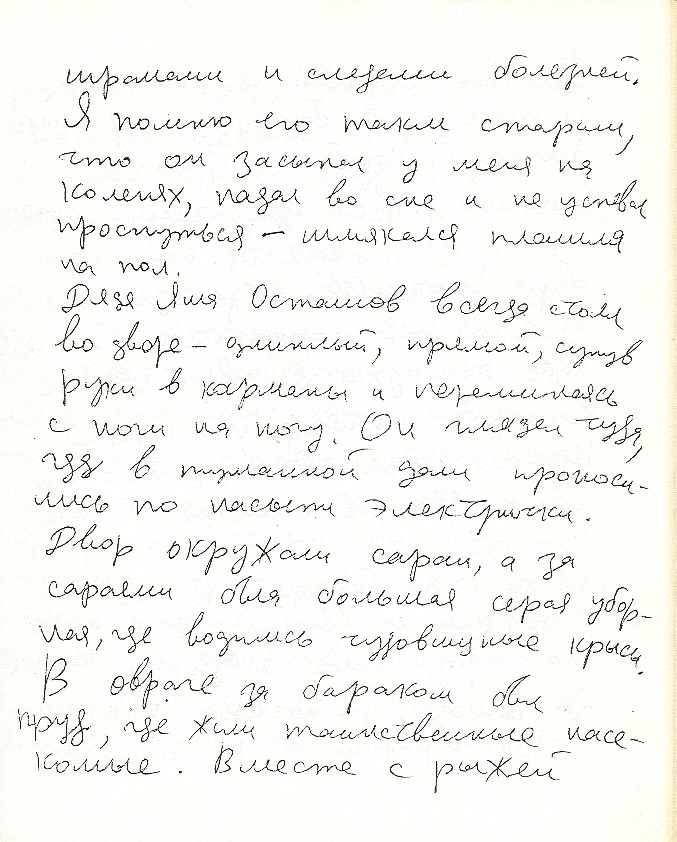 шрамами и следами болезней.
Я помню его таким старым,
что он засыпал у меня на
коленях, падал во сне и не успевал
проснуться — шмякался плашмя
на пол.
Дядя Яша Осташов всегда стоял
во дворе — длинный, прямой, сунув
руки в карманы и переминаясь
с ноги на ногу. Он глядел туда,
где в туманной дали проноси-
лись по насыпи электрички.
Двор окружали сараи, а за
сараями была большая серая убор-
ная, где водились чудовищные крысы.
В овраге за бараком был
пруд, где жили таинственные насе-
комые. Вместе с рыжей